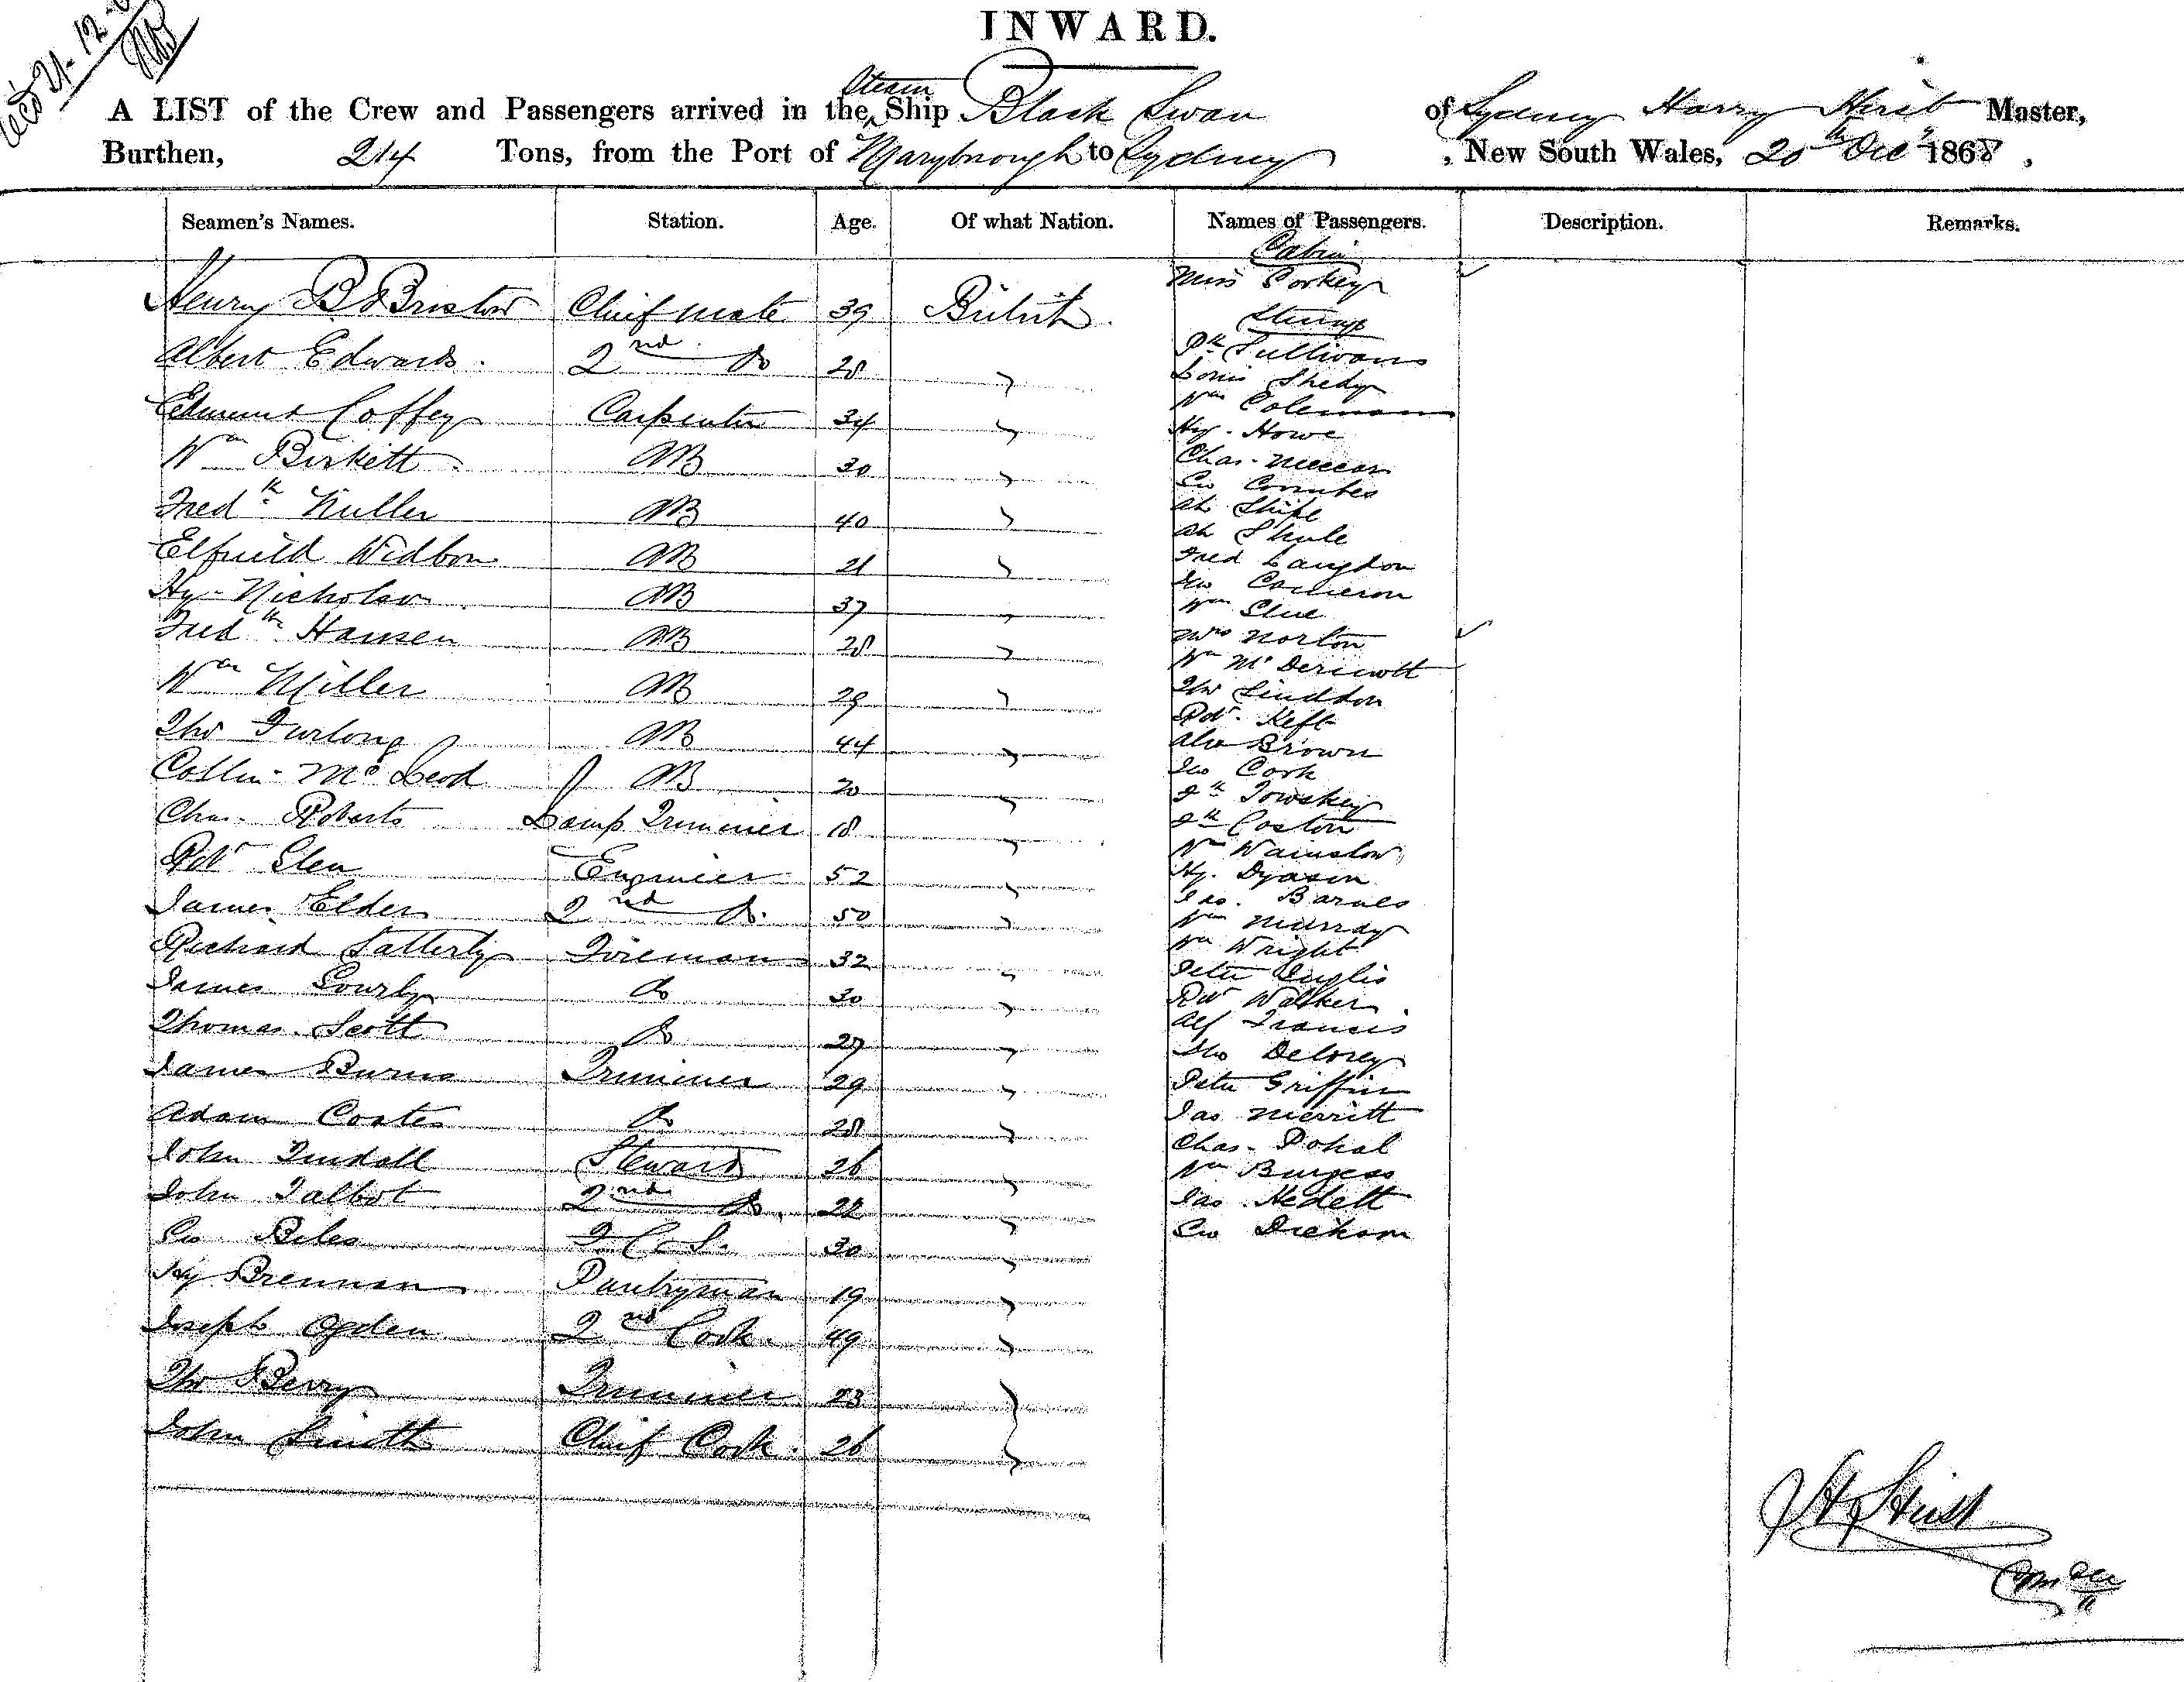 21-12-
INWARD.
Steam
A LIST of the Crew and Passengers arrived in the Ship Black Swan of Sydney Harry Hirst Master,
Burthen, 214 Tons, from the Port of Marybrough to Sydney, New South Wales, 20th Decr 1868.
Seamen's Names. Station. Age. Of what Nation. Names of Passengers. Description. Remarks.
Henry B Bristow Chief mate 39 British
Albert Edwards 2nd Do 28 "
Edmund Coffey Carpenter 34 "
Wm Birkett AB 30 "
Fredk Muller AB 40 "
Widbom AB 21 "
Hy Nicholson AB 37 "
Fredk Hansen AB 28 "
Wm Miller AB 29 "
Thos Furlong AB 44 "
Collin McLeod AB 20 "
Chas Roberts Lamp Trimmer 18 "
Robt Glen Engineer 52 "
James Elder 2nd Do. 50 "
Richard Satterly Fireman 32 "
James Do 30 "
Thomas Scott Do 27 "
James Burns Trimmer 29 "
Adam Coates Do 28 "
John Tindall Steward 26 "
John Talbot 2nd Do. 22 "
Geo Biles F.C.S. 30 "
Hy Brennan Pantryman 19 "
Joseph Ogden 2nd Cook 49 "
Thos Berry Trimmer 23 "
John Smith Chief Cook 26 "
Cabin
Miss Corkey
Steerage
Pk Sullivan
Louis Shedy
Wm Coleman
Hy. Howe
Chas.
Geo Coombes
Ah
Ah
Fred Langdon
Jno Cameron
Wm Clue
Mrs Norton
Wm McDermott
Thos
Robt.
Alex Brown
Jno Cook
Wm
Hy. Dyason
Jas. Barnes
Wm Murray
Wm Wright
Peter Inglis
Robt Walker
Alf Francis
Jno Delorey
Peter Griffin
Jas Merritt
Chas. Pohal
Wm Burgess
Jas Hedett
Geo Dickson
H Hirst
Commdr